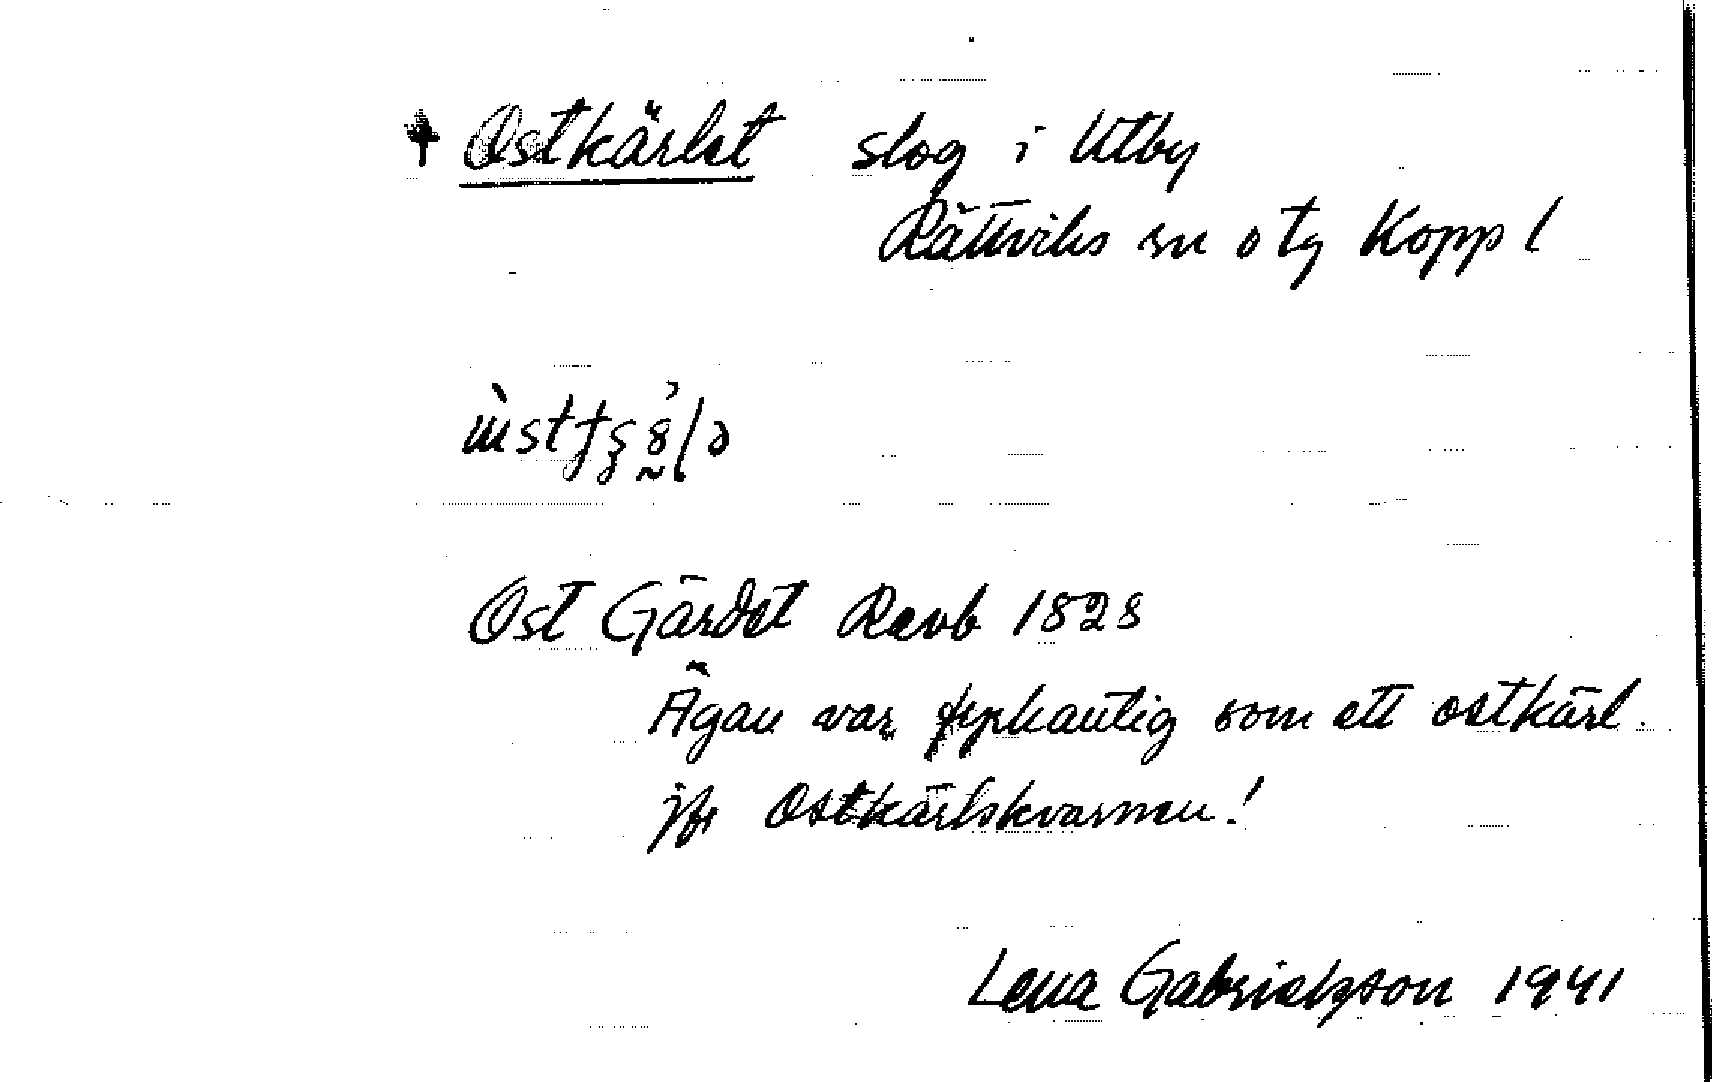 † Ostkärlet slog i Utby
Rättviks sn o tg Kopp l
Ost Gärdet Renb 1828
Ägan var fyrkantig som ett ostkärl.
jfr Ostkärlskvarnen!
Lena Gabrielsson 1941